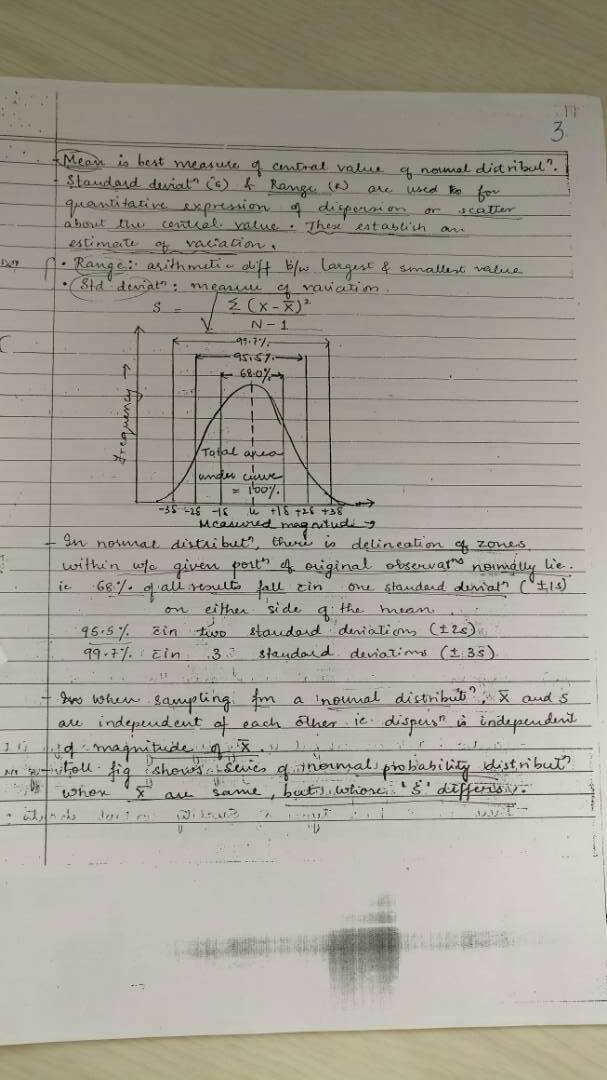 3
- Mean is best measure of central value of normal distributⁿ.
- Standard deviatⁿ (s) & Range (R) are used for
quantitative expression of dispersion or scatter
about the central value. These establish an
estimate of variation.
• Range:- arithmetic diff b/w largest & smallest value
• Std deviatⁿ: measure of variation.
S = √ Σ (X - X̄)²
N - 1
99.7%
95.5%
68.0%
Frequency →
Total area
under curve
= 100%
-3S -2S -1S u +1S +2S +3S
Measured magnitude →
- In normal distributⁿ, there is delineation of zones
within w/c given portⁿ of original observatⁿs normally lie.
ie 68% of all results fall c̄in one standard deviatⁿ (±1s)
on either side of the mean.
95.5% c̄in two standard deviations (±2s)
99.7% c̄in 3 standard deviations (± 3s)
- when sampling fm a normal distributⁿ, X̄ and s
are independent of each other ie. dispersⁿ is independent
of magnitude of X̄.
- foll. fig shows series of normal probability distributⁿ
whose X̄ are same, but whose 'S' differs.